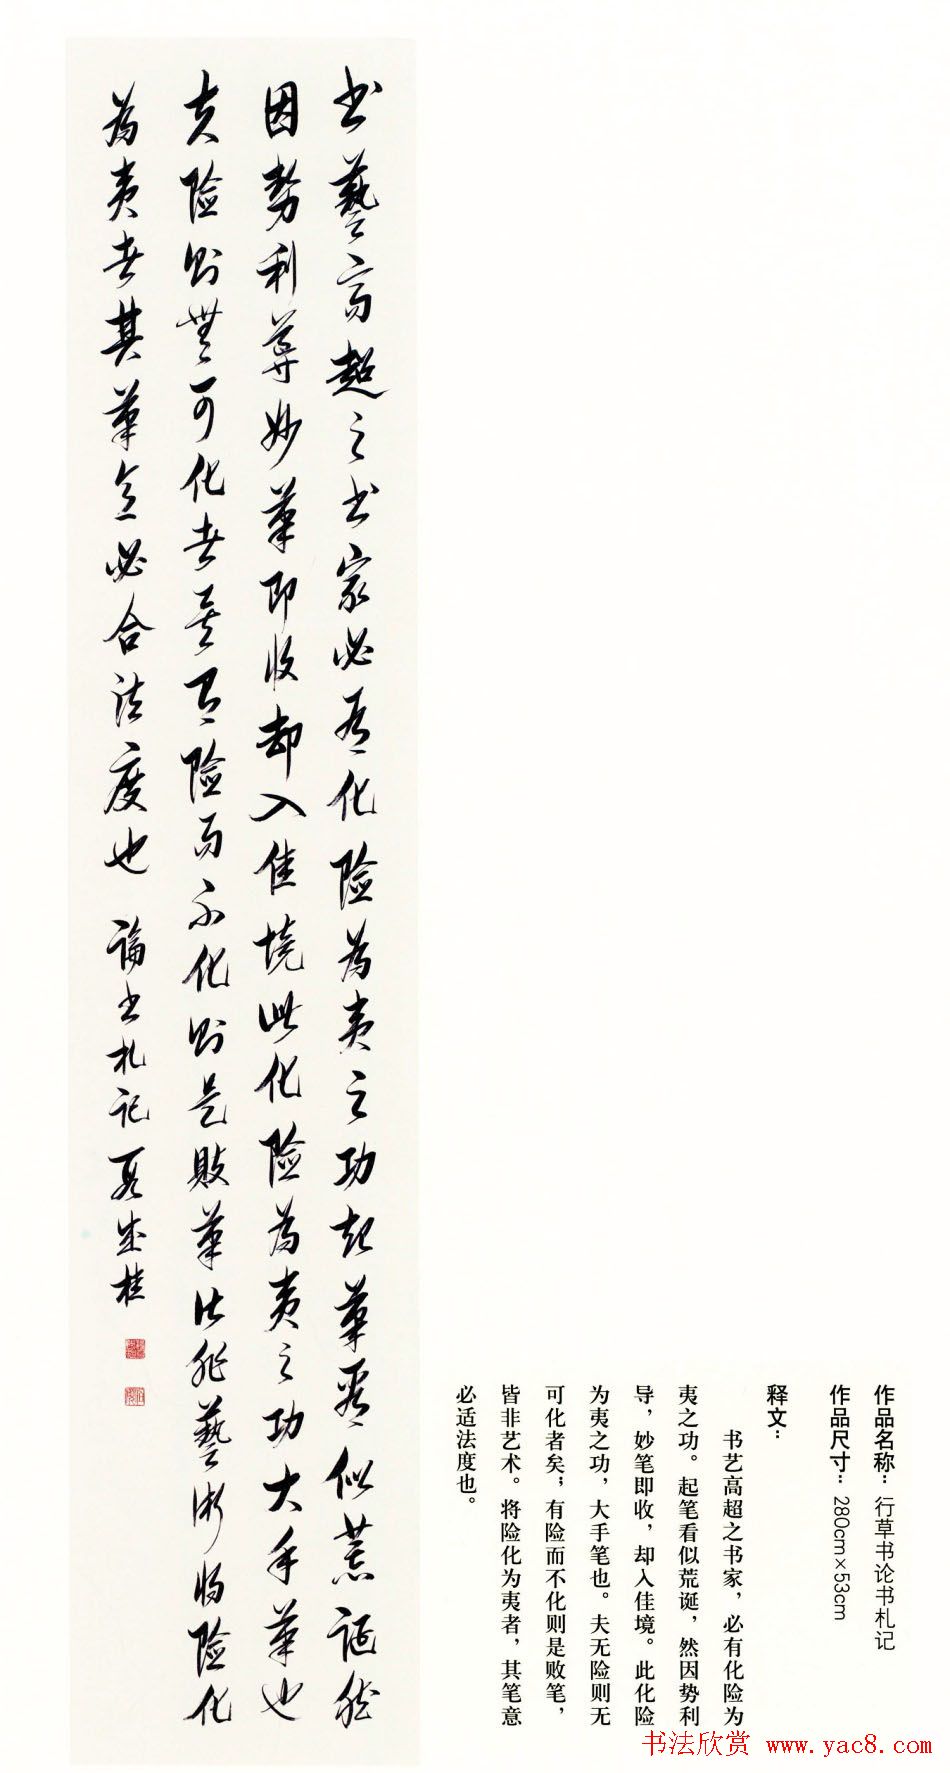 作品名称：行草书论书札记
作品尺寸：280cm×53cm
释文：
书艺高超之书家，必有化险为
夷之功。起笔看似荒诞，然因势利
导，妙笔即收，却入佳境。此化险
为夷之功，大手笔也。夫无险则无
可化者矣；有险而不化则是败笔，
皆非艺术。将险化为夷者，其笔意
必适法度也。
书藝高超之书家必有化险為夷之功起筆看似荒诞然
因勢利導妙筆即收却入佳境此化险為夷之功大手筆也
夫险则無可化者矣有险而不化则是敗筆皆非藝術将险化
為夷者其筆意必合法度也 論书札记 聂成桂
书法欣赏 www.yac8.com